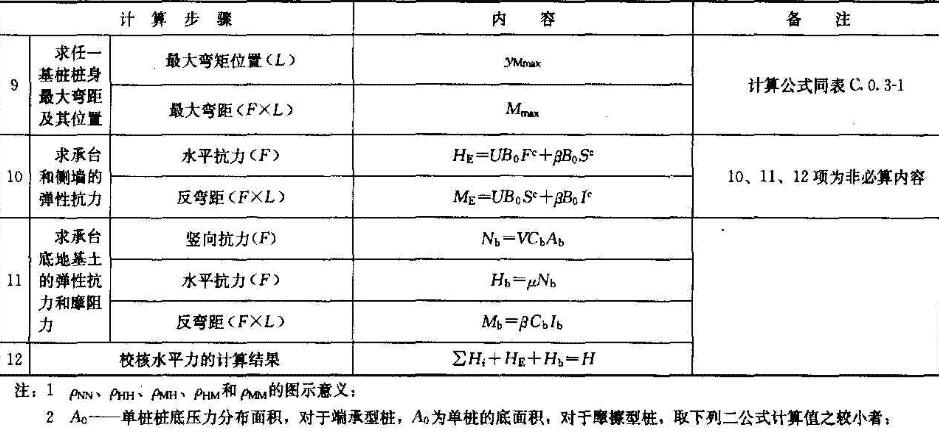 计算步骤 内容 备注
9 求任一基桩桩身最大弯距及其位置 最大弯矩位置(L) yMmax 计算公式同表 C.0.3-1
最大弯距(F×L) Mmax
10 求承台和侧墙的弹性抗力 水平抗力(F) HE=UB0Fc+βB0Sc 10、11、12 项为非必算内容
反弯距(F×L) ME=UB0Sc+βB0Ic
11 求承台底地基土的弹性抗力和摩阻力 竖向抗力(F) Nb=VCbAb
水平抗力(F) Hb=μNb
反弯距(F×L) Mb=βCbIb
12 校核水平力的计算结果 ∑Hi+HE+Hb=H
注：1 ρNN、ρHH、ρMH、ρHM和ρMM的图示意义；
2 A0——单桩桩底压力分布面积，对于端承型桩，A0为单桩的底面积，对于摩擦型桩，取下列二公式计算值之较小者；